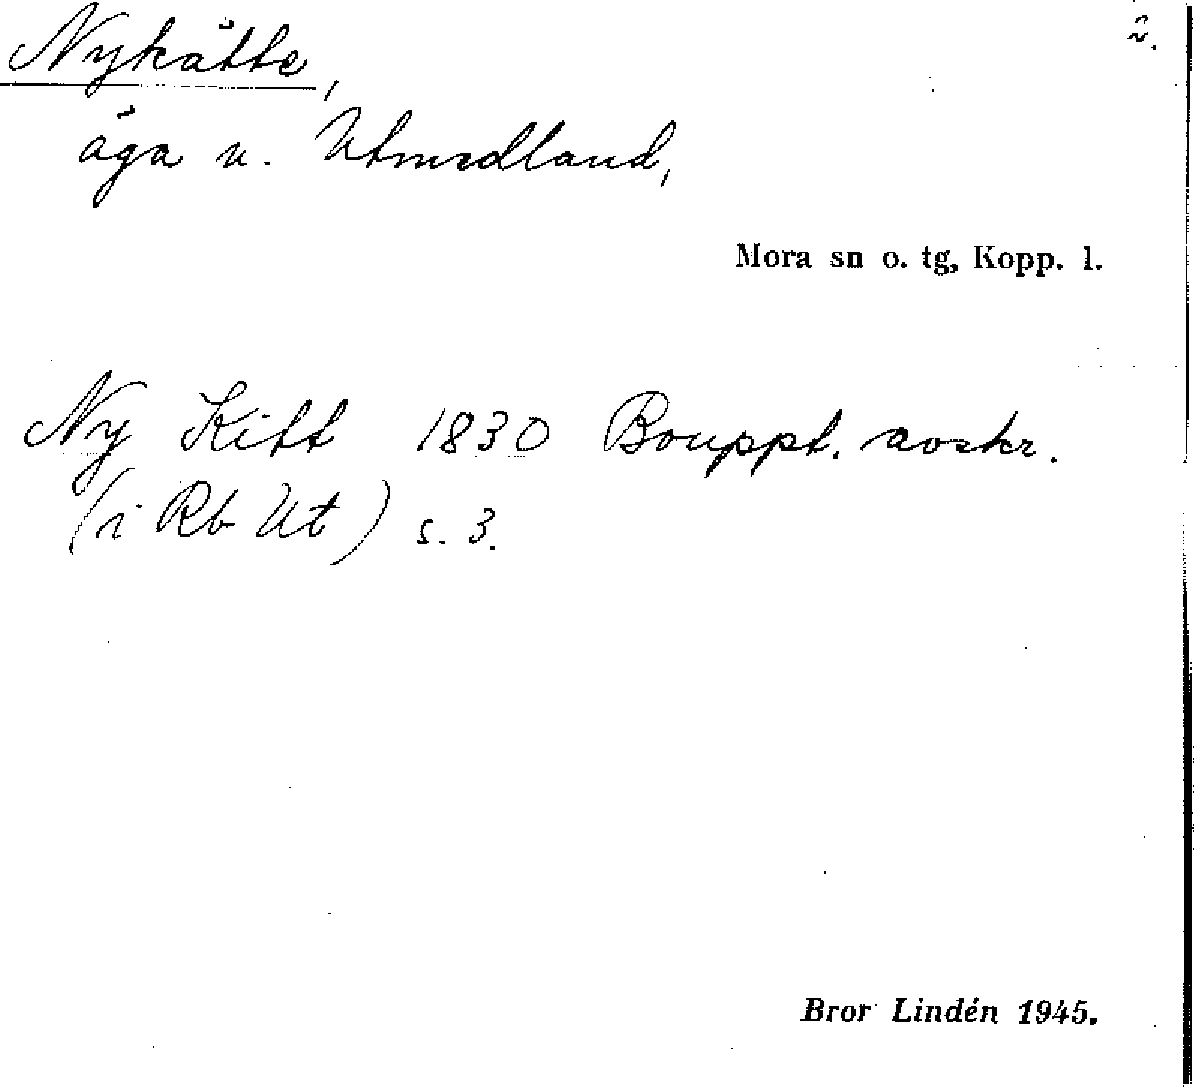 2.
Nykätte,
äga v. Utmedland,
Mora sn o. tg, Kopp. l.
Ny Kitt 1830 Bouppt. avskr.
(i Rb Ut) s. 3.
Bror Lindén 1945.